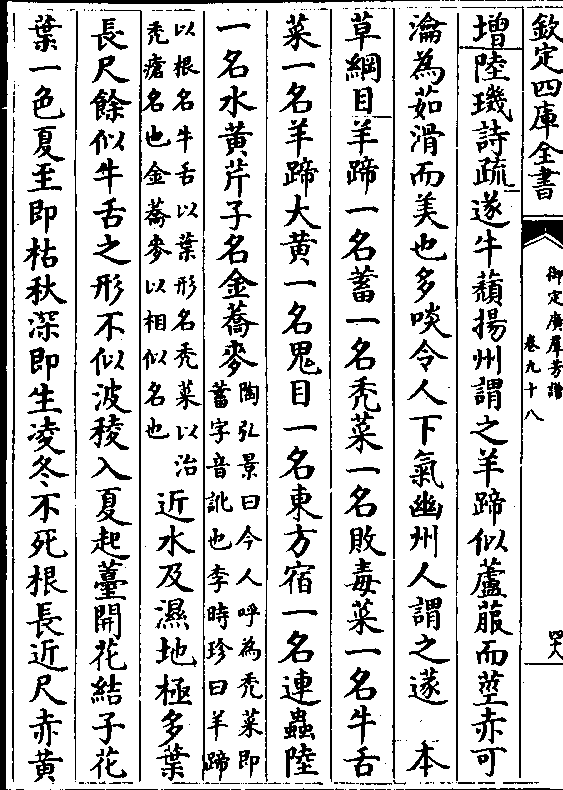 欽定四庫全書
御定廣羣芳譜
卷九十八
四八
增陸璣詩疏蓫牛蘈揚州謂之羊蹄似蘆菔而莖赤可
瀹為茹滑而美也多啖令人下氣幽州人謂之蓫　本
草綱目羊蹄一名蓄一名秃菜一名敗毒菜一名牛舌
菜一名羊蹄大黄一名鬼目一名東方宿一名連蟲陸
一名水黄芹子名金蕎麥
陶弘景曰今人呼為秃菜即
蓄字音訛也李時珍曰羊蹄
以根名牛舌以葉形名秃菜以治
秃瘡名也金蕎麥以相似名也
近水及濕地極多葉
長尺餘似牛舌之形不似波稜入夏起薹開花結子花
葉一色夏至即枯秋深即生凌冬不死根長近尺赤黄